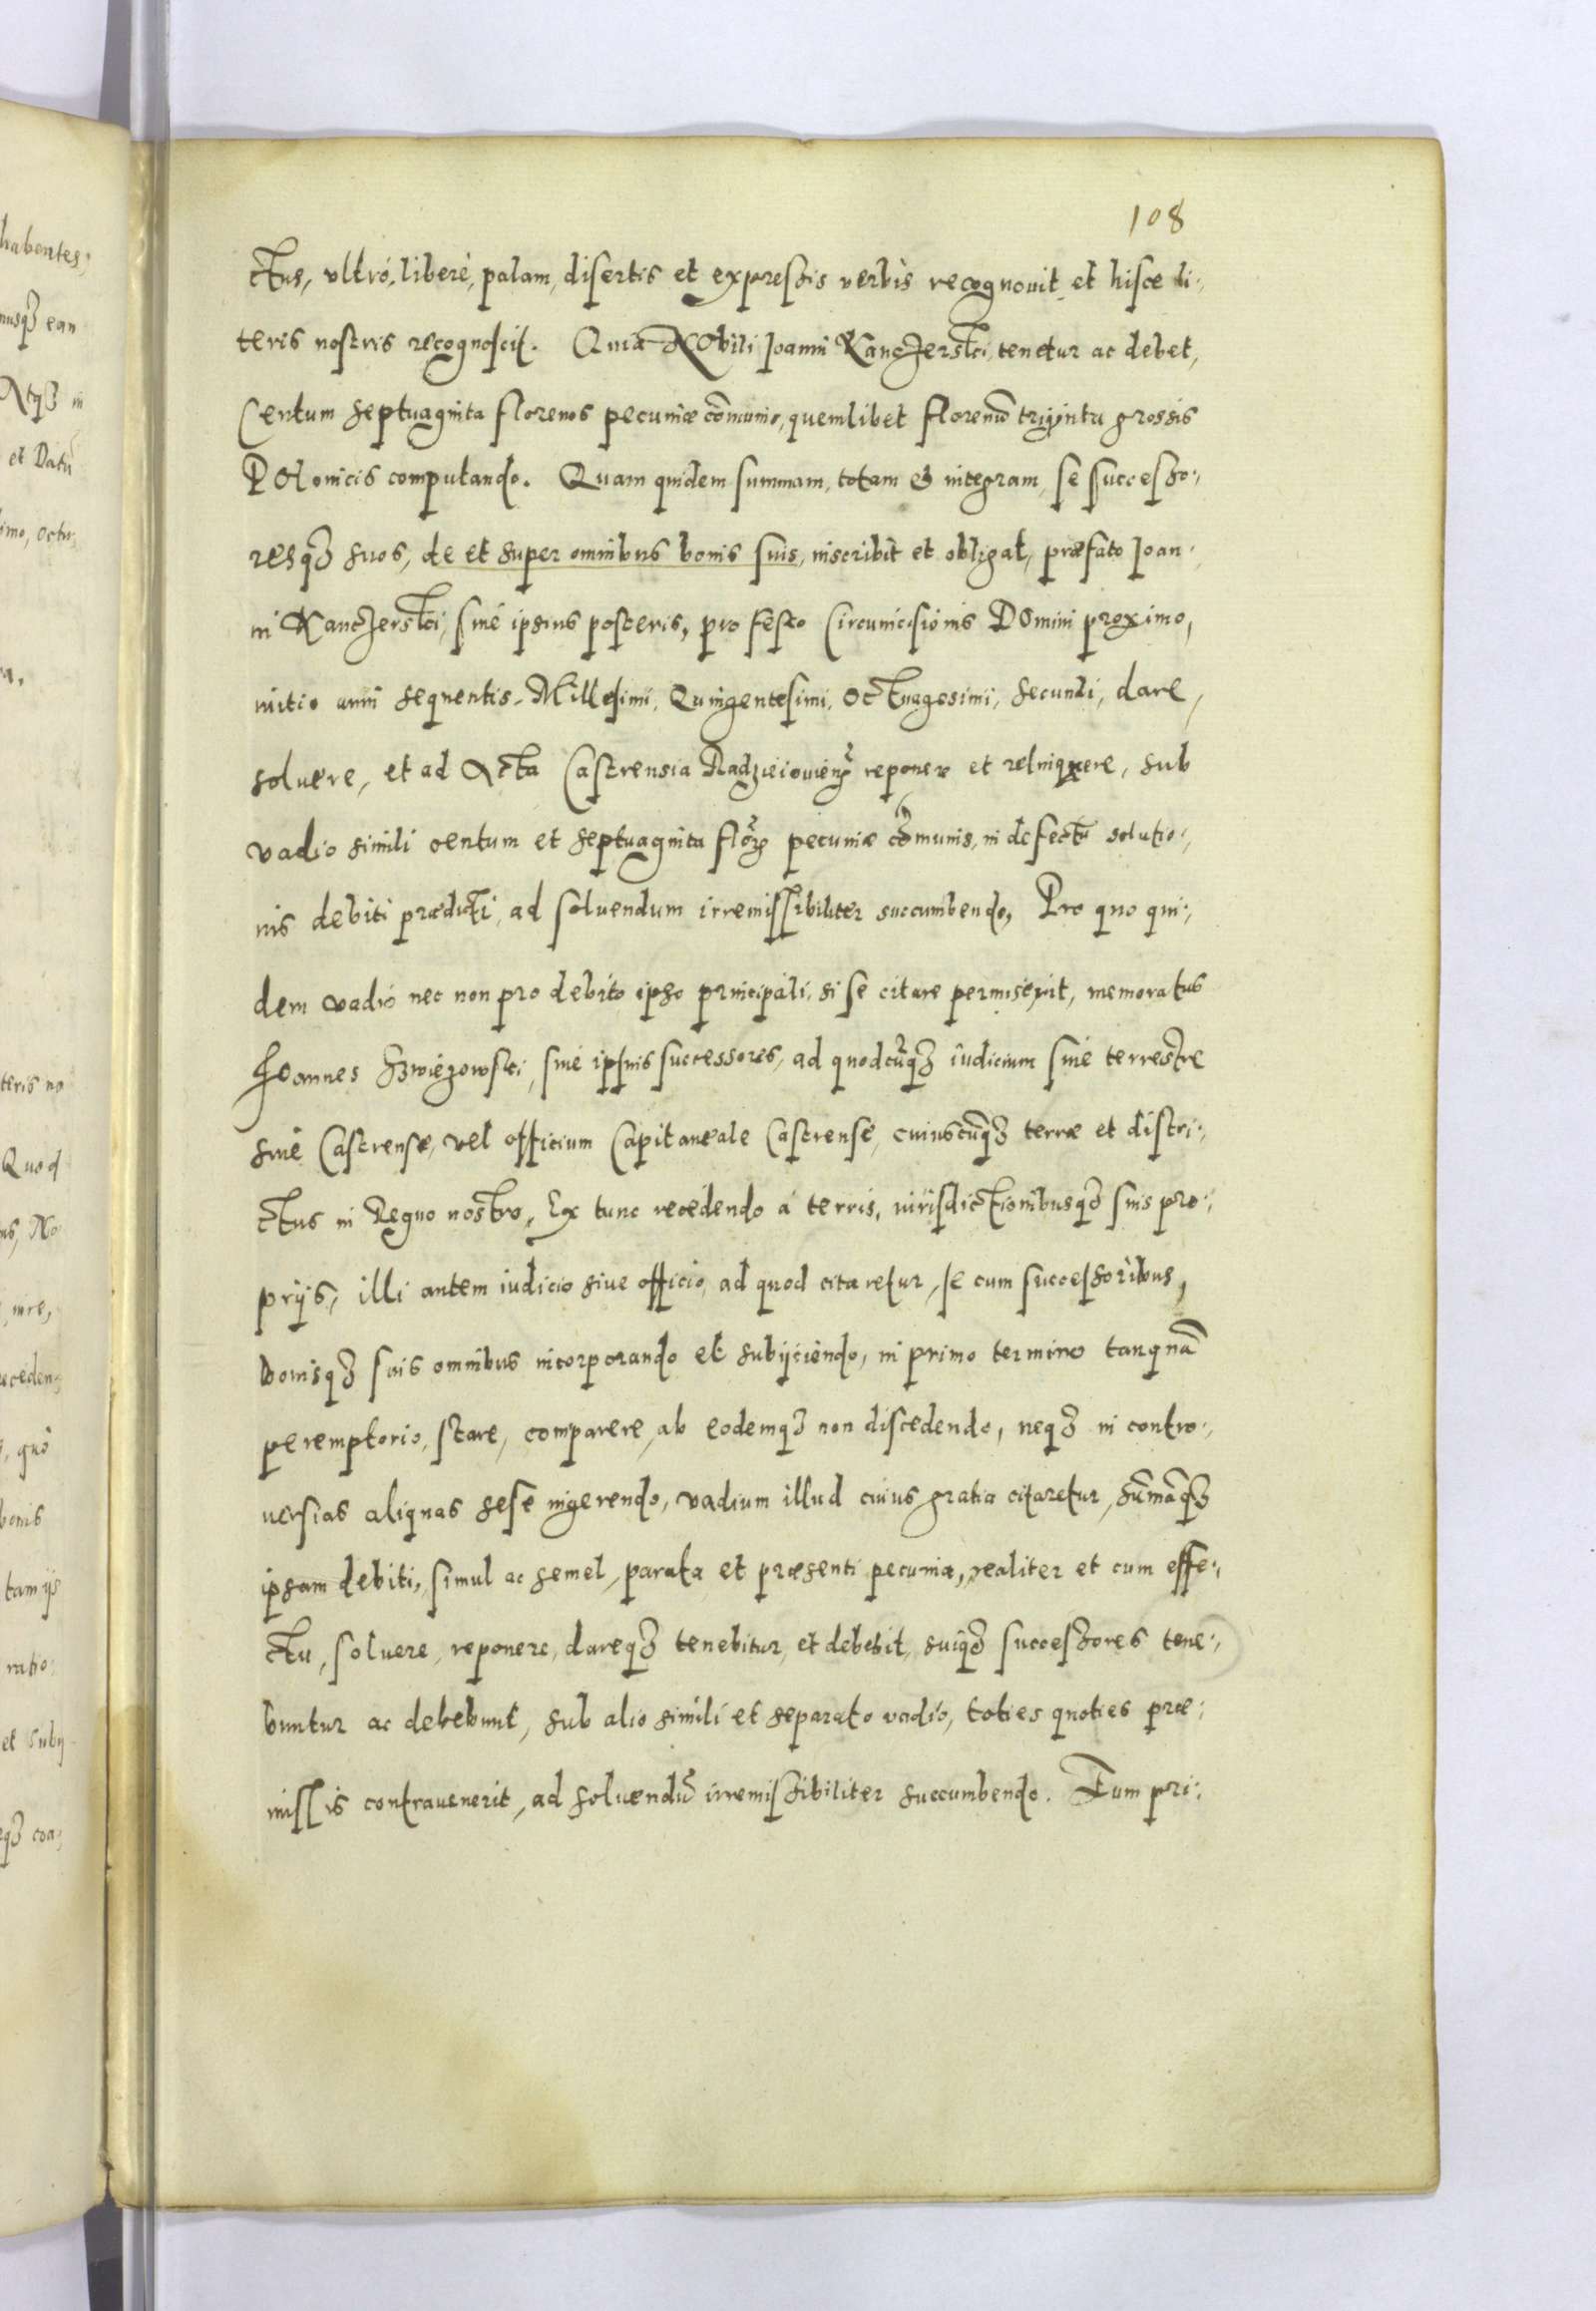 108
ctus, ultró, liberè, palam, disertis et expressis verbis recognouit et hisce li,
teris nostris recognoscit. Quia Nobili Joanni Kanczerski, tenetur ac debet,
Centum septuaginta florenos pecuniæ cõmunis, quemlibet florenũ triginta grossis
Polonicis computando. Quam quidem summam, totam & integram, se successo,
resq3 suos, de et super omnibus bonis suis, inscribit et obligat, præfato Joan,
ni Kanczerski, siué ipsius posteris, pro festo Circumcisionis Domini proximo,
initio anni sequentis Millesimi, Quingentesimi, Octuagesimi, secundi, dare,
soluere, et ad Acta Castrensia Radzieiouien̄ reponere et relinquere, sub
vadio simili centum et septuaginta flor̃ pecuniæ cõmunis, in defectũ solutio,
nis debiti prædicti, ad soluendum irremissibiliter succumbendo, Pro quo qui,
dem vadio nec non pro debito ipso principali, si se citare permiserit, memoratus
Joannes Szwiezowski, siué ipsius successores, ad quodcũq3 iudicium siué terrestre
siuè Castrense, vel officium Capitaneale Castrense, cuiuscũq3 terræ et distri,
ctus in Regno nostro, Ex tunc recedendo á terris, iurisdictionibusq3 suis pro,
prijs, illi autem iudicio siue officio, ad quod citaretur, se cum successoribus,
bonisq3 suis omnibus incorporando et subijciendo, in primo termino tanquã
peremptorio, stare, comparere, ab eodemq3 non discedendo, neq3 in contro,
uersias aliquas sese ingerendo, vadium illud cuius gratia citaretur, sũmãq3
ipsam debiti, simul ac semel, parata et præsenti pecunia, realiter et cum effe,
ctu, soluere, reponere, dareq3 tenebitur, et debebit, suiq3 successores tene,
buntur ac debebunt, sub alio simili et separato vadio, toties quoties præ,
missis contrauenerit, ad soluendũ irremissibiliter succumbendo. Tum pri,